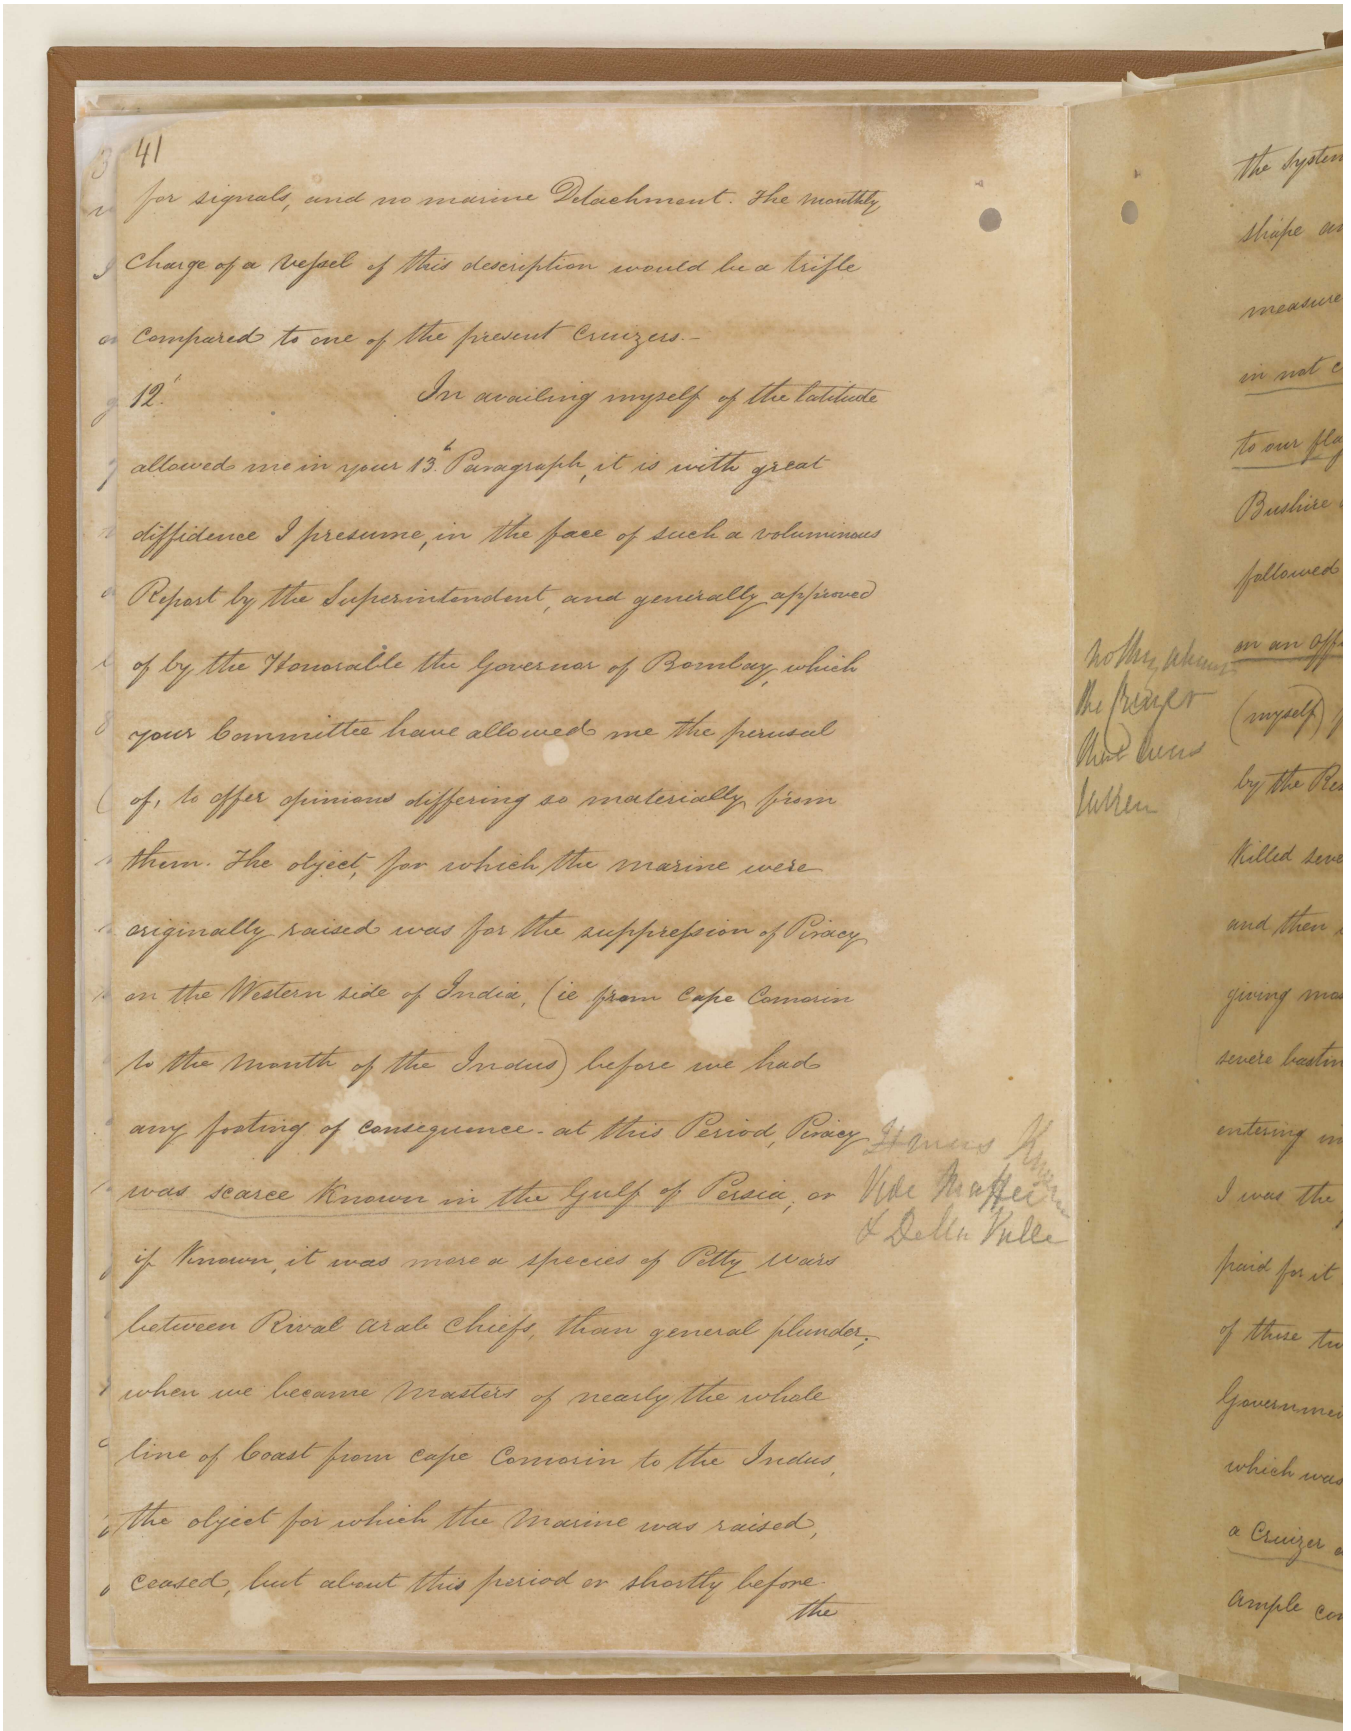 41
for signals, and no marine Detachment. The monthly
Charge of a vessel of this description would be a trifle
compared to one of the present Cruizers.-
12. In availing myself of the latitude
allowed me in your 13th Paragraph, it is with great
diffidence I presume, in the face of such a voluminous
Report by the Superintendent, and generally approved
of by the Honorable the Governor of Bombay, which
your Committee have allowed me the perusal
of, to offer opinions differing so materially from
them. The object, for which the marine were
originally raised was for the suppression of Piracy
on the Western side of India, (ie from Cape Comorin
to the Mouth of the Indus) before we had
any footing of consequence - at this Period, Piracy
was scarce known in the Gulf of Persia, or
if known, it was more a species of Petty wars
between Rival Arab Chiefs, than general plunder;
when we became Masters of nearly the whole
line of Coast from Cape Comorin to the Indus,
the object for which the Marine was raised,
ceased, but about this period or shortly before
the
Vide Maffei
& Della Valle
the
that was
taken
the System
shape
measure
in not
to our
Bushire
followed
on an
(myself)
by the
killed
and then
giving
severe
entering
I was the
paid for it
of these
which was
a Cruizer
ample